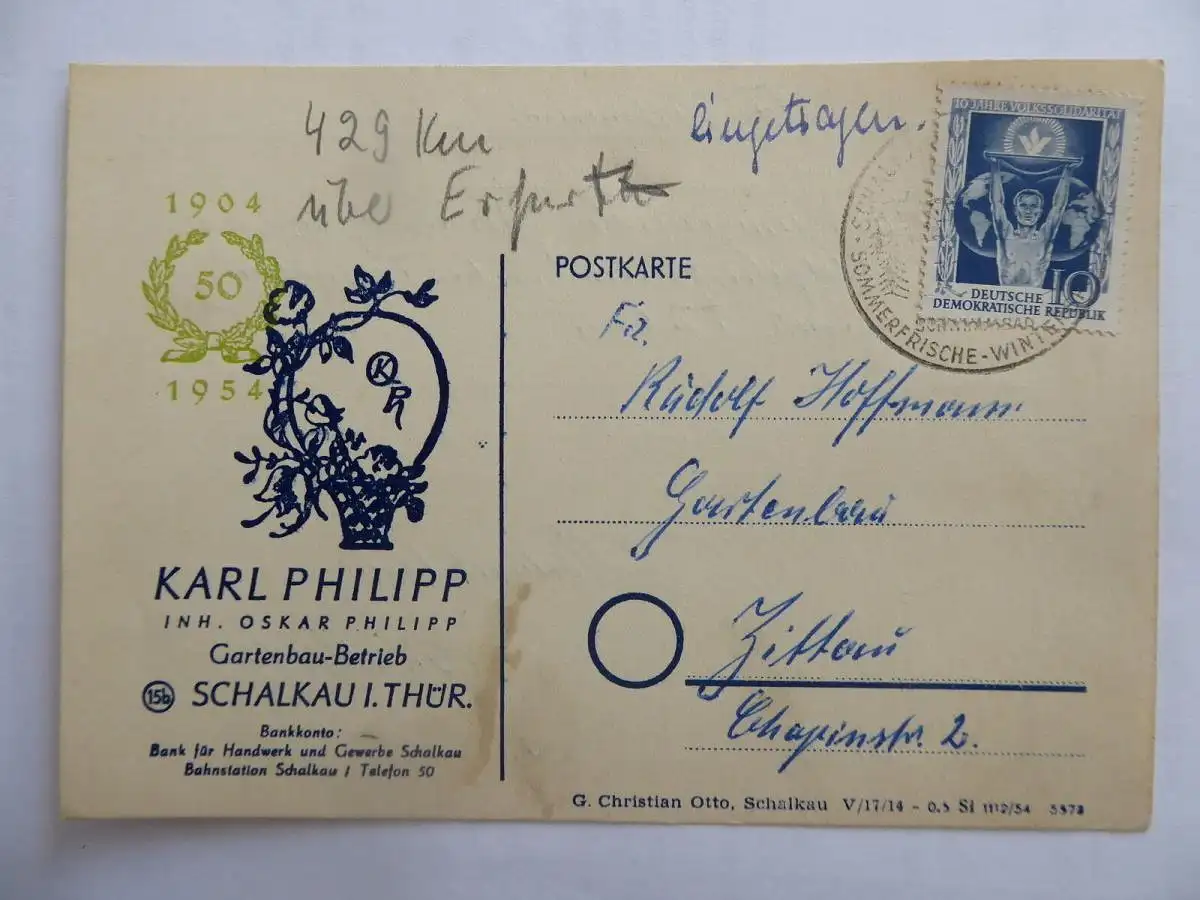 429 Km
übe Erfurt
eingetragen.
10 JAHRE VOLKSSOLIDARITÄT
10
DEUTSCHE
DEMOKRATISCHE REPUBLIK
SOMMERFRISCHE-WINTE
1904
50
1954
K
POSTKARTE
Fa.
Rudolf Hoffmann
Gartenbau
Zittau
Chopinstr. 2.
KARL PHILIPP
INH. OSKAR PHILIPP
Gartenbau-Betrieb
15b SCHALKAU I. THÜR.
Bankkonto:
Bank für Handwerk und Gewerbe Schalkau
Bahnstation Schalkau / Telefon 50
G. Christian Otto, Schalkau V/17/14 - 0,5 Si 1112/54 5573